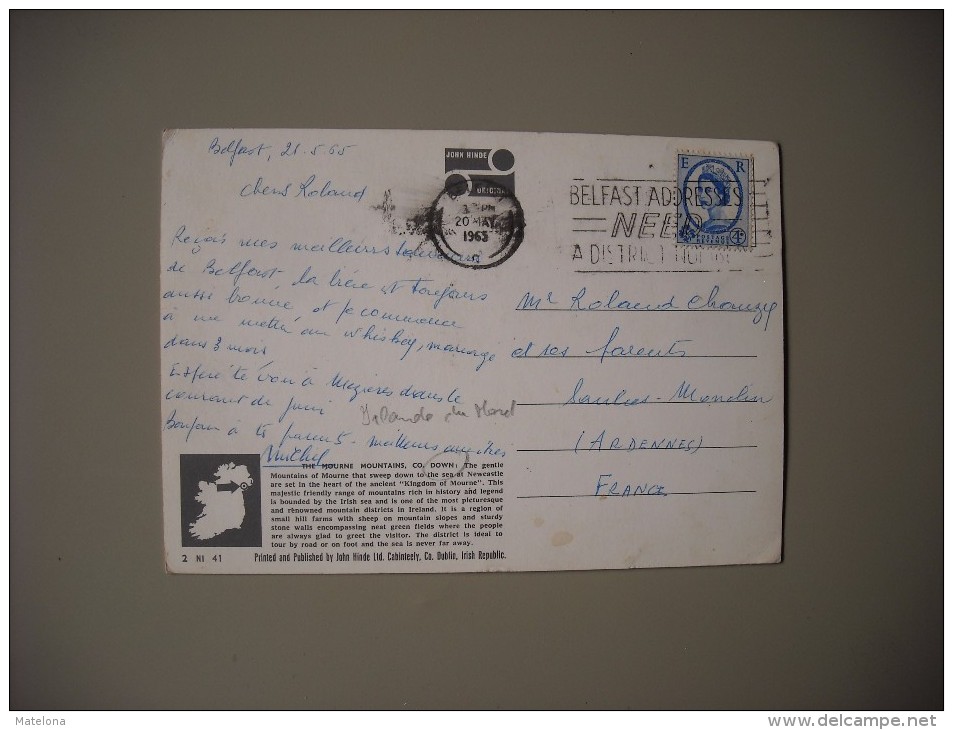 Belfast, 21.5.65
JOHN HINDE
ORIGINAL
Cher Roland
3 PM
20 MAY
1965
BELFAST ADDRESSES
NEED
A DISTRICT NUMBER
E R
POSTAGE 4D
Reçois mes meilleurs
de Belfast, la bière est toujours
aussi bonne, et je commence
à me mettre au whiskey, mariage
dans 3 mois
Espère te voir à Mézières dans le
courant de juin
Irlande du Nord
Bonjour à tes parents - meilleurs
Michel
Mr Roland Chanzy
et ses parents
Saulces-Monclin
(ARDENNES)
FRANCE
THE MOURNE MOUNTAINS, CO. DOWN: The gentle
Mountains of Mourne that sweep down to the sea at Newcastle
are set in the heart of the ancient "Kingdom of Mourne". This
majestic friendly range of mountains rich in history and legend
is bounded by the Irish sea and is one of the most picturesque
and renowned mountain districts in Ireland. It is a region of
small hill farms with sheep on mountain slopes and sturdy
stone walls encompassing neat green fields where the people
are always glad to greet the visitor. The district is ideal to
tour by road or on foot and the sea is never far away.
2 NI 41
Printed and Published by John Hinde Ltd. Cabinteely, Co. Dublin, Irish Republic.
Matelona
http://www.delcampe.net